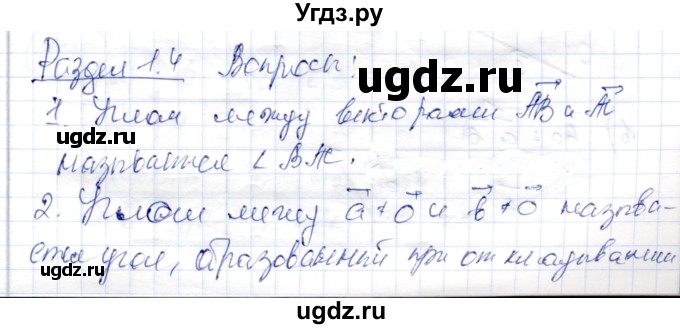 Угдз.ру
Раздел 1.4 Вопросы:
ugdz.ru
1. Углом между векторами AB и AC
ugdz.ru
называется < BAC.
ugdz.ru
2. Углом между a ≠ 0 и b ≠ 0 называ-
ется угол, образованный при откладывании
ugdz.ru
ugdz.ru
©ugdz.ru